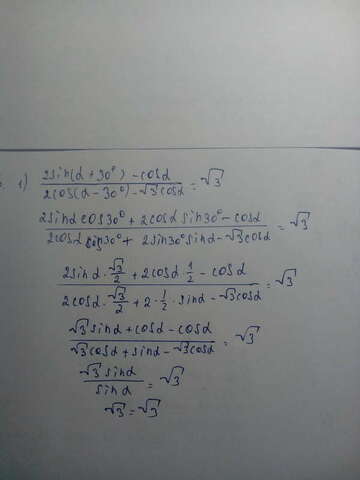 1) (2sin(α + 30°) - cosα)/(2cos(α - 30°) - √3cosα) = √3
(2sinα cos30° + 2cosα sin30° - cosα)/(2cosα cos30° + 2sin30° sinα - √3cosα) = √3
(2sinα · √3/2 + 2cosα · 1/2 - cosα)/(2cosα · √3/2 + 2 · 1/2 · sinα - √3cosα) = √3
(√3 sinα + cosα - cosα)/(√3cosα + sinα - √3cosα) = √3
(√3 sinα)/(sinα) = √3
√3 = √3